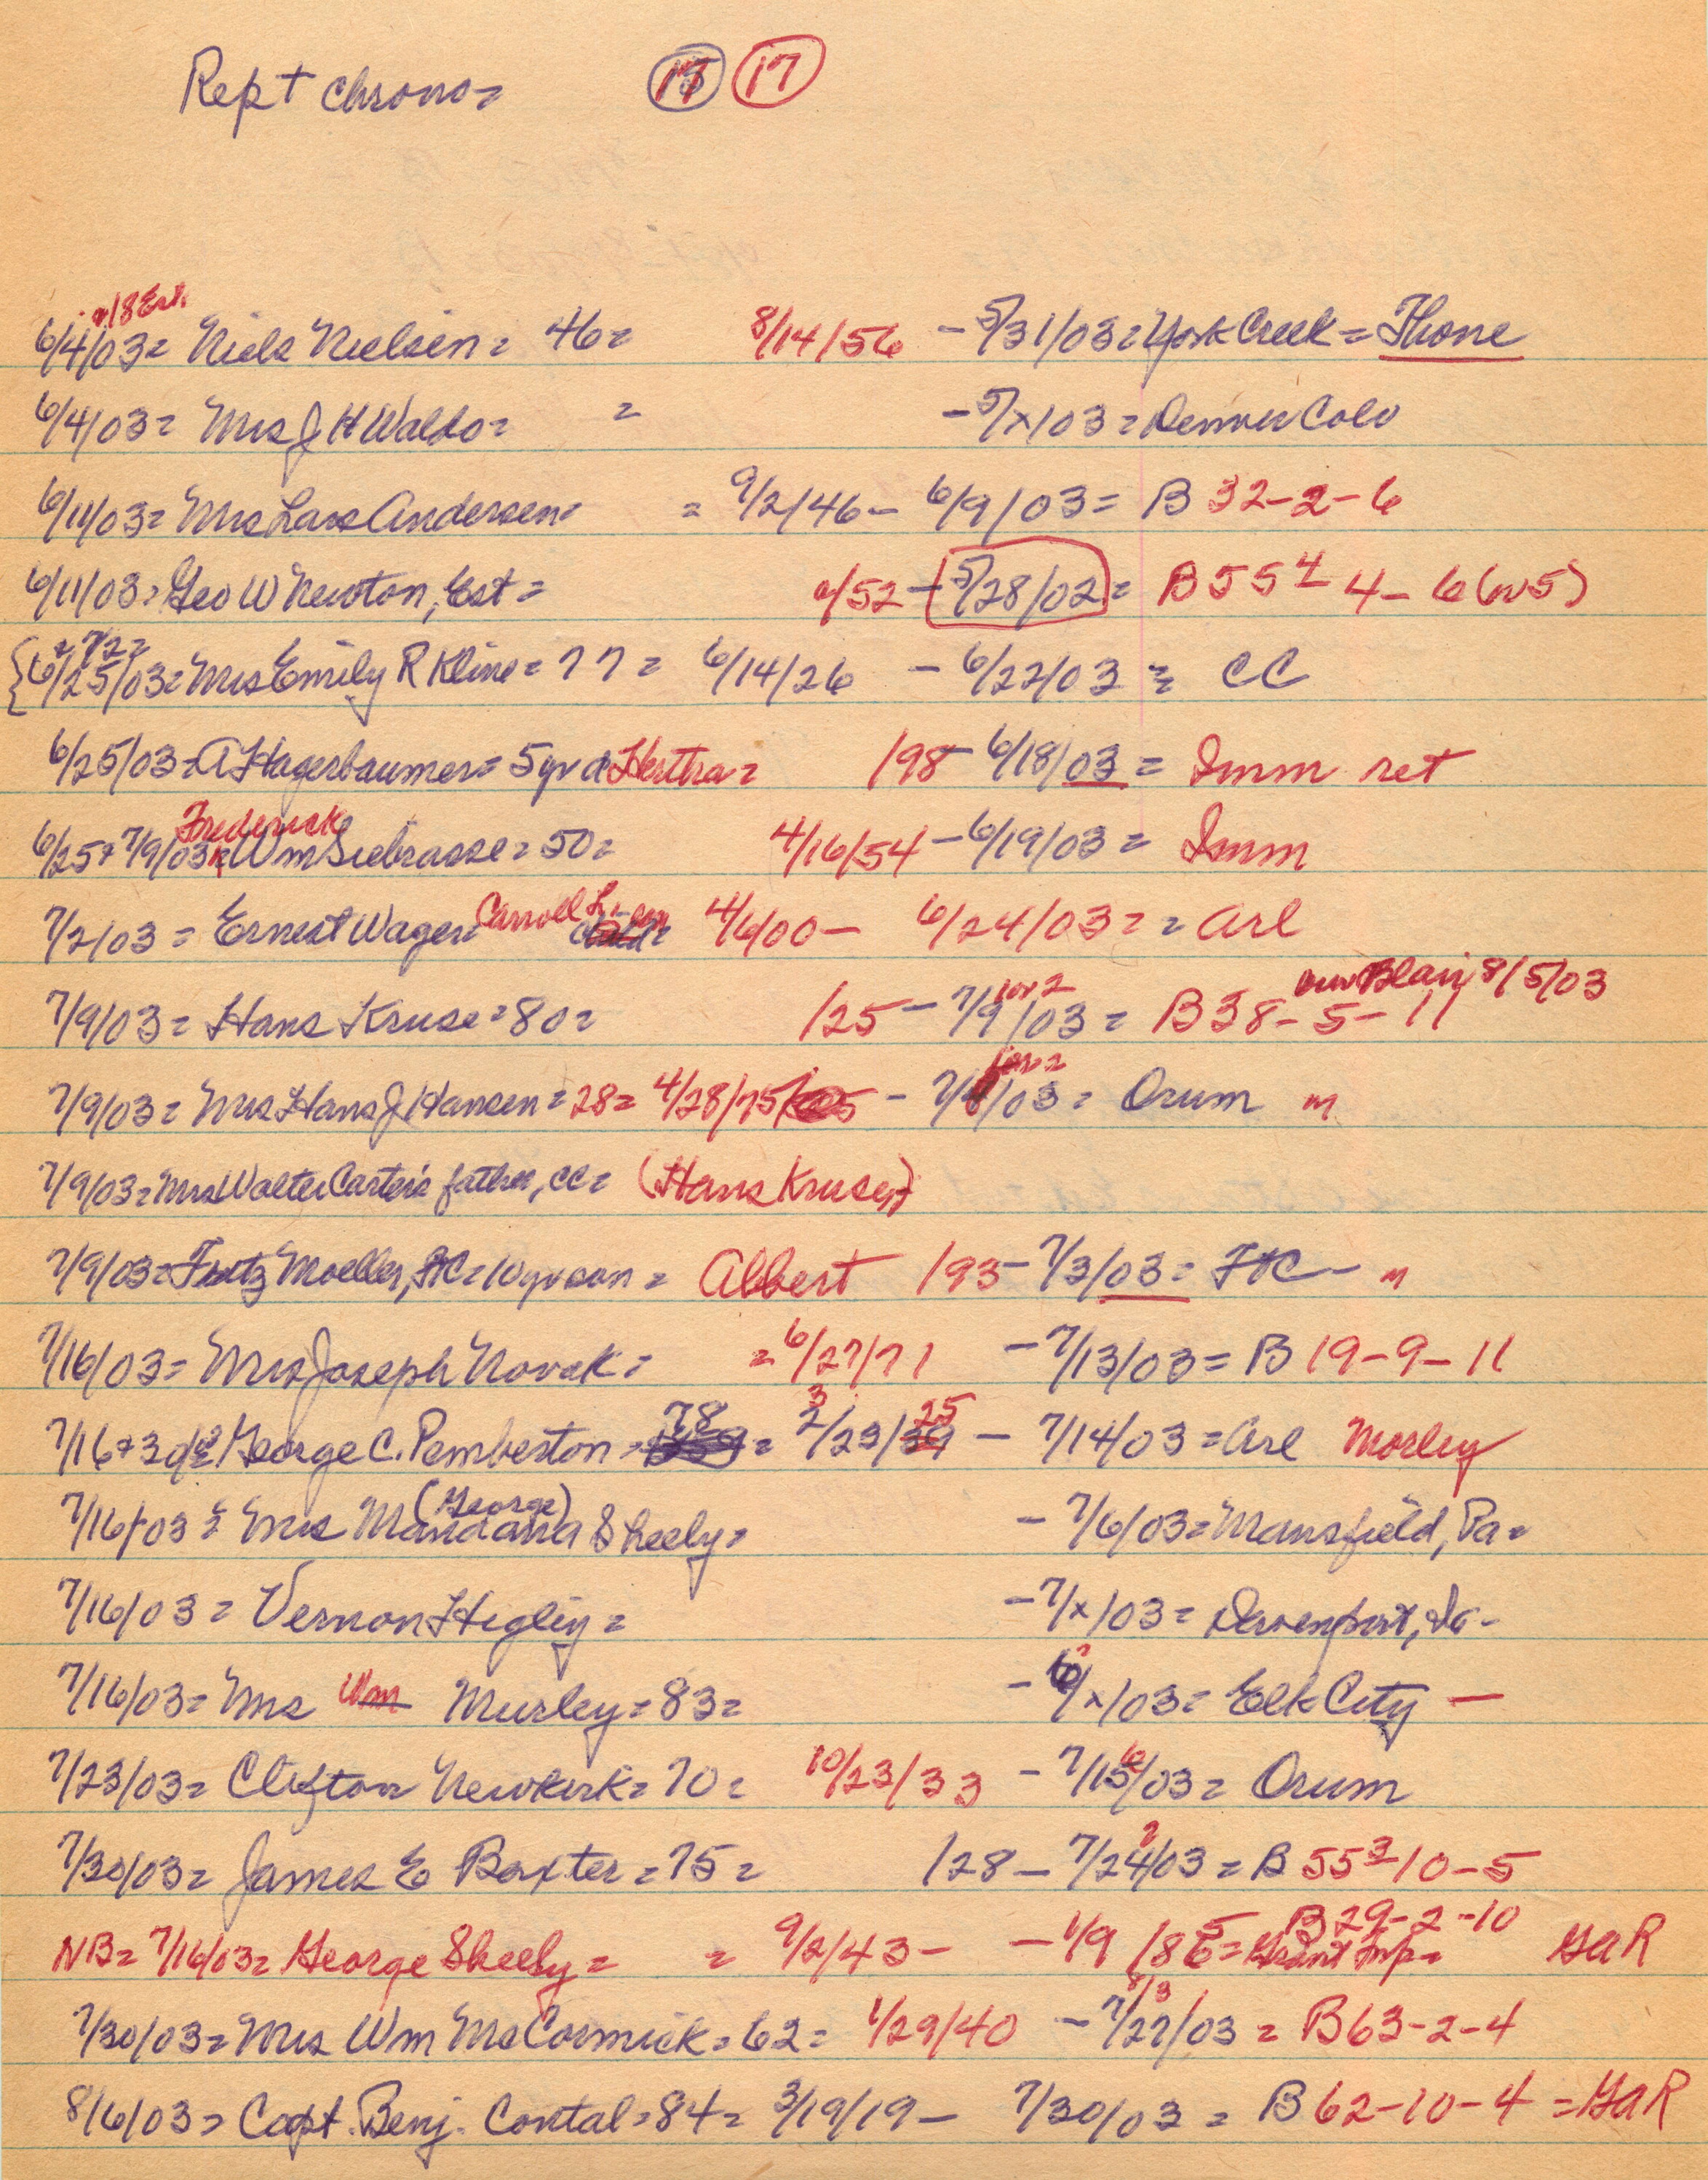 Rept chrono= 17
6/4/03= Niels Nielsen= 46= 8/14/56 - 5/31/03= York Creek = Thone
6/4/03= Mrs J H Waldo= = - 5/x/03= Denver Colo
6/11/03= Mrs Lars Andersen= = 9/2/46 - 6/9/03= B 32-2-6
6/11/03= Geo W Newton, Est= /52 - 5/28/02= B 55 4 4-6 (or 5)
+ 7/2=
{6/25/03= Mrs Emily R Kline= 77= 6/14/26 - 6/22/03 = CC
6/25/03= A Hagerbaumer= 5 yr d Hertha= /98 - 6/18/03 = Imm ret
Frederick
6/25+7/9/03= Wm Siebrasse= 50= 4/16/54 - 6/19/03= Imm
7/2/03= Ernest Wager= Carroll 4/6/00 - 6/24/03= = Arl
or 2 our Blair 8/5/03
7/9/03= Hans Kruse= 80= /25 - 7/9/03= B 38-5-11
7/9/03= Mrs Hans J Hansen= 28= 4/28/75 - 7/8/03= Orum m
7/9/03= Mrs Walter Carter's father, CC= (Hans Kruse,)
7/9/03= Fritz Moeller, FtC= 10 yr son= Albert /93 - 7/3/03= FtC - m
7/16/03= Mrs Joseph Novak= = 6/27/71 - 7/13/03= B 19-9-11
78 3 25
7/16+30/03 George C. Pemberton= = 2/23/39 - 7/14/03= Arl Morley
(George)
7/16/03= Mrs Mandana Sheely= - 7/6/03= Mansfield, Pa=
7/16/03= Vernon Higley= - 7/x/03= Davenport, Ia-
7/16/03= Mrs Wm Murley= 83= - /x/03= Elk City -
7/23/03= Clifton Newkirk= 70= 10/23/33 - 7/15/03= Orum
7/30/03= James E Baxter= 75= /28 - 7/24/03= B 55 3 10-5
B 29-2-10
NB= 7/16/03= George Sheely= = 9/2/43 - - 1/9/86= Grant Imp= GAR
8/3
7/30/03= Mrs Wm McCormick= 62= 1/29/40 - 7/27/03= B 63-2-4
8/6/03= Capt. Benj. Contal= 84= 3/19/19 - 7/30/03= B 62-10-4 = GAR